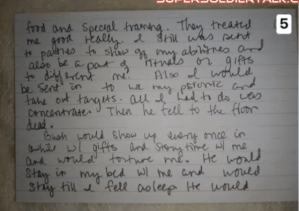 SUPERSOLDIERTALK.C
5
food and special training. They treated
me good really. I still was sent
to parties to show off my abilities and
also be a part of rituals or gifts
to different me. Also I would
be sent in to use my psychic and
take out targets. All I had to do was
concentrate. Then he fell to the floor
dead.
Bush would show up every once in
while w/ gifts and storytime w/ me
and would torture me. He would
stay in my bed w/ me and would
stay till I fell asleep. He would